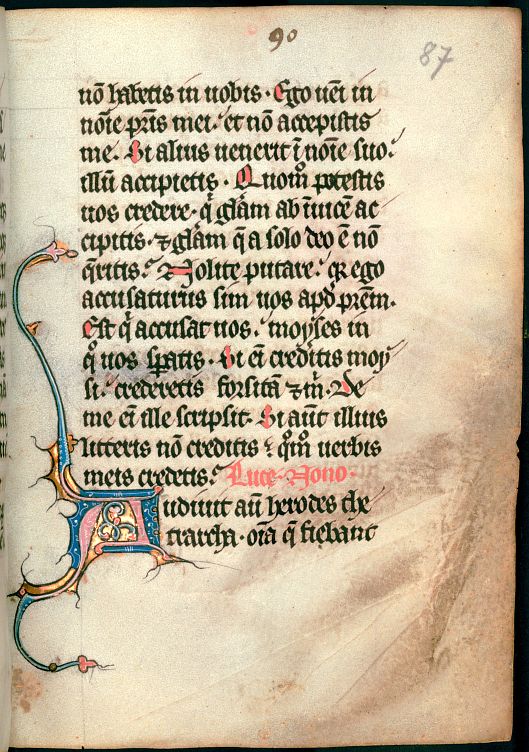 90
87
nō habetis in uobis. Ego uēi in
noīe pr̄is mei. et nō accepistis
me. Si alius uenerit ī noīe suo.
illū accipietis. Quom̊ potestis
uos credere. q̇ gl̄am ab īuicē ac
cipitis. ⁊ gl̄am q̄ a solo deo ē nō
q̄ritis. Nolite putare. qꝛ ego
accusaturus sim uos apđ pr̄em.
Est q̇ accusat uos. moyses in
q̊ uos sꝑatis. Si eī creditis moy
si. crederetis forsitā ⁊ m̄. De
me eī ille scripsit. Si aūt illius
litteris nō creditis. q̊m̊ uerbis
meis credetis. Luce. Nono.
Audiuit aū herodes the
trarcha. oīa q̄ fiebant